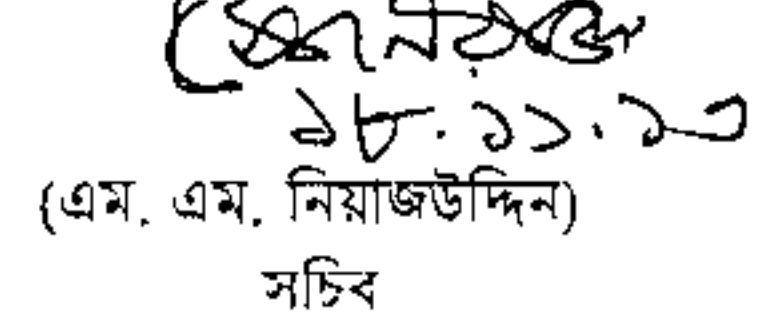 ১৮.১১.১৩
(এম. এম. নিয়াজউদ্দিন)
সচিব